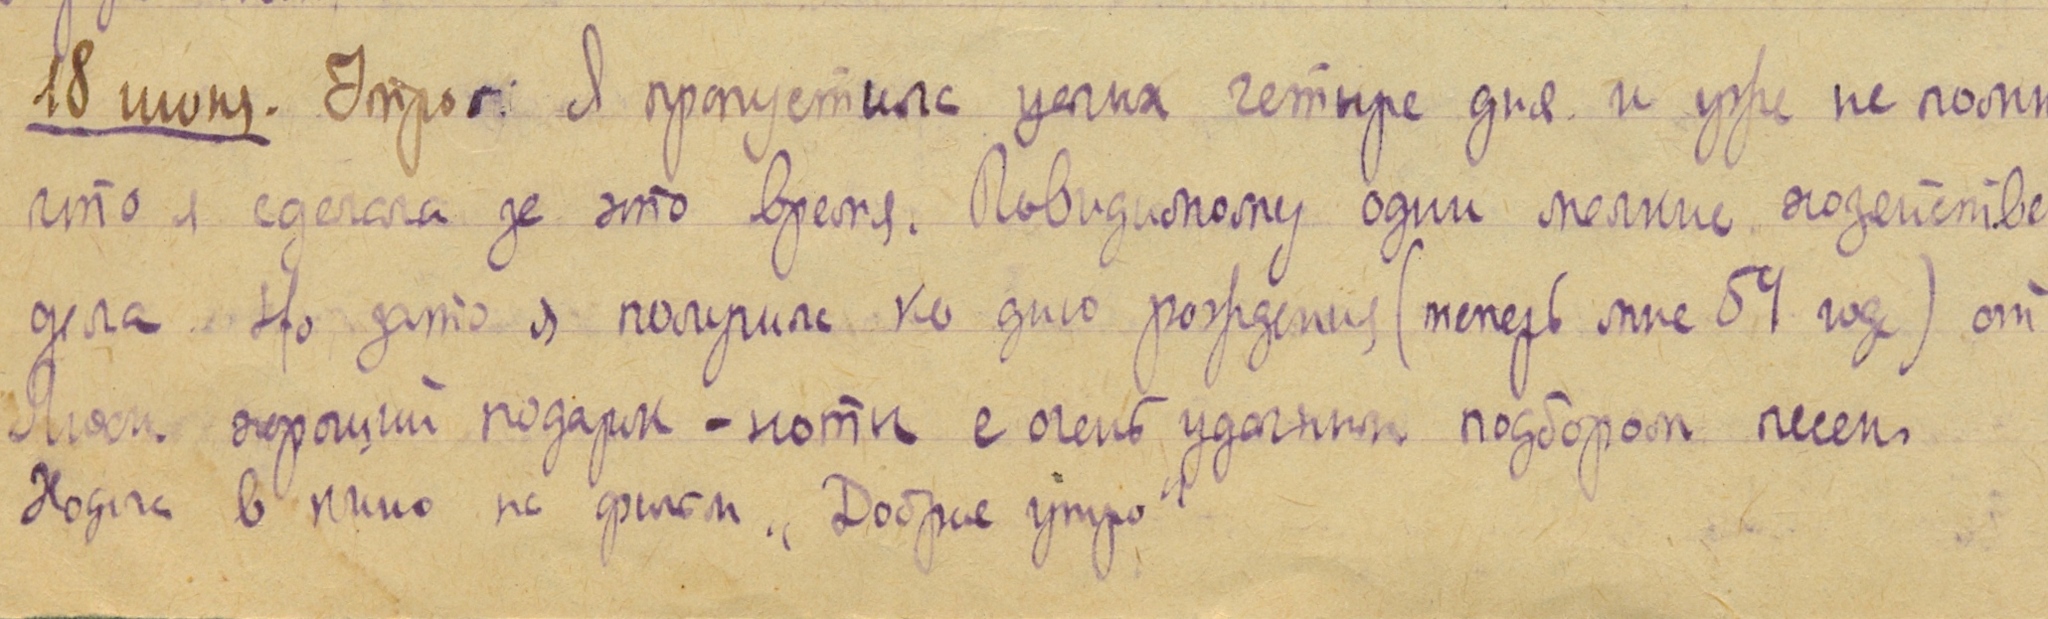 18 июня. Утро: Я пропустила целых четыре дня и уже не помн
что я сделала за это время. Повидимому одни мелкие хозяйстве
дела Но зато я получила ко дню рождения (теперь мне 54 года) от
Люси хороший подарок - ноты с очень удачным подбором песен.
Ходила в кино на фильм „Доброе утро"